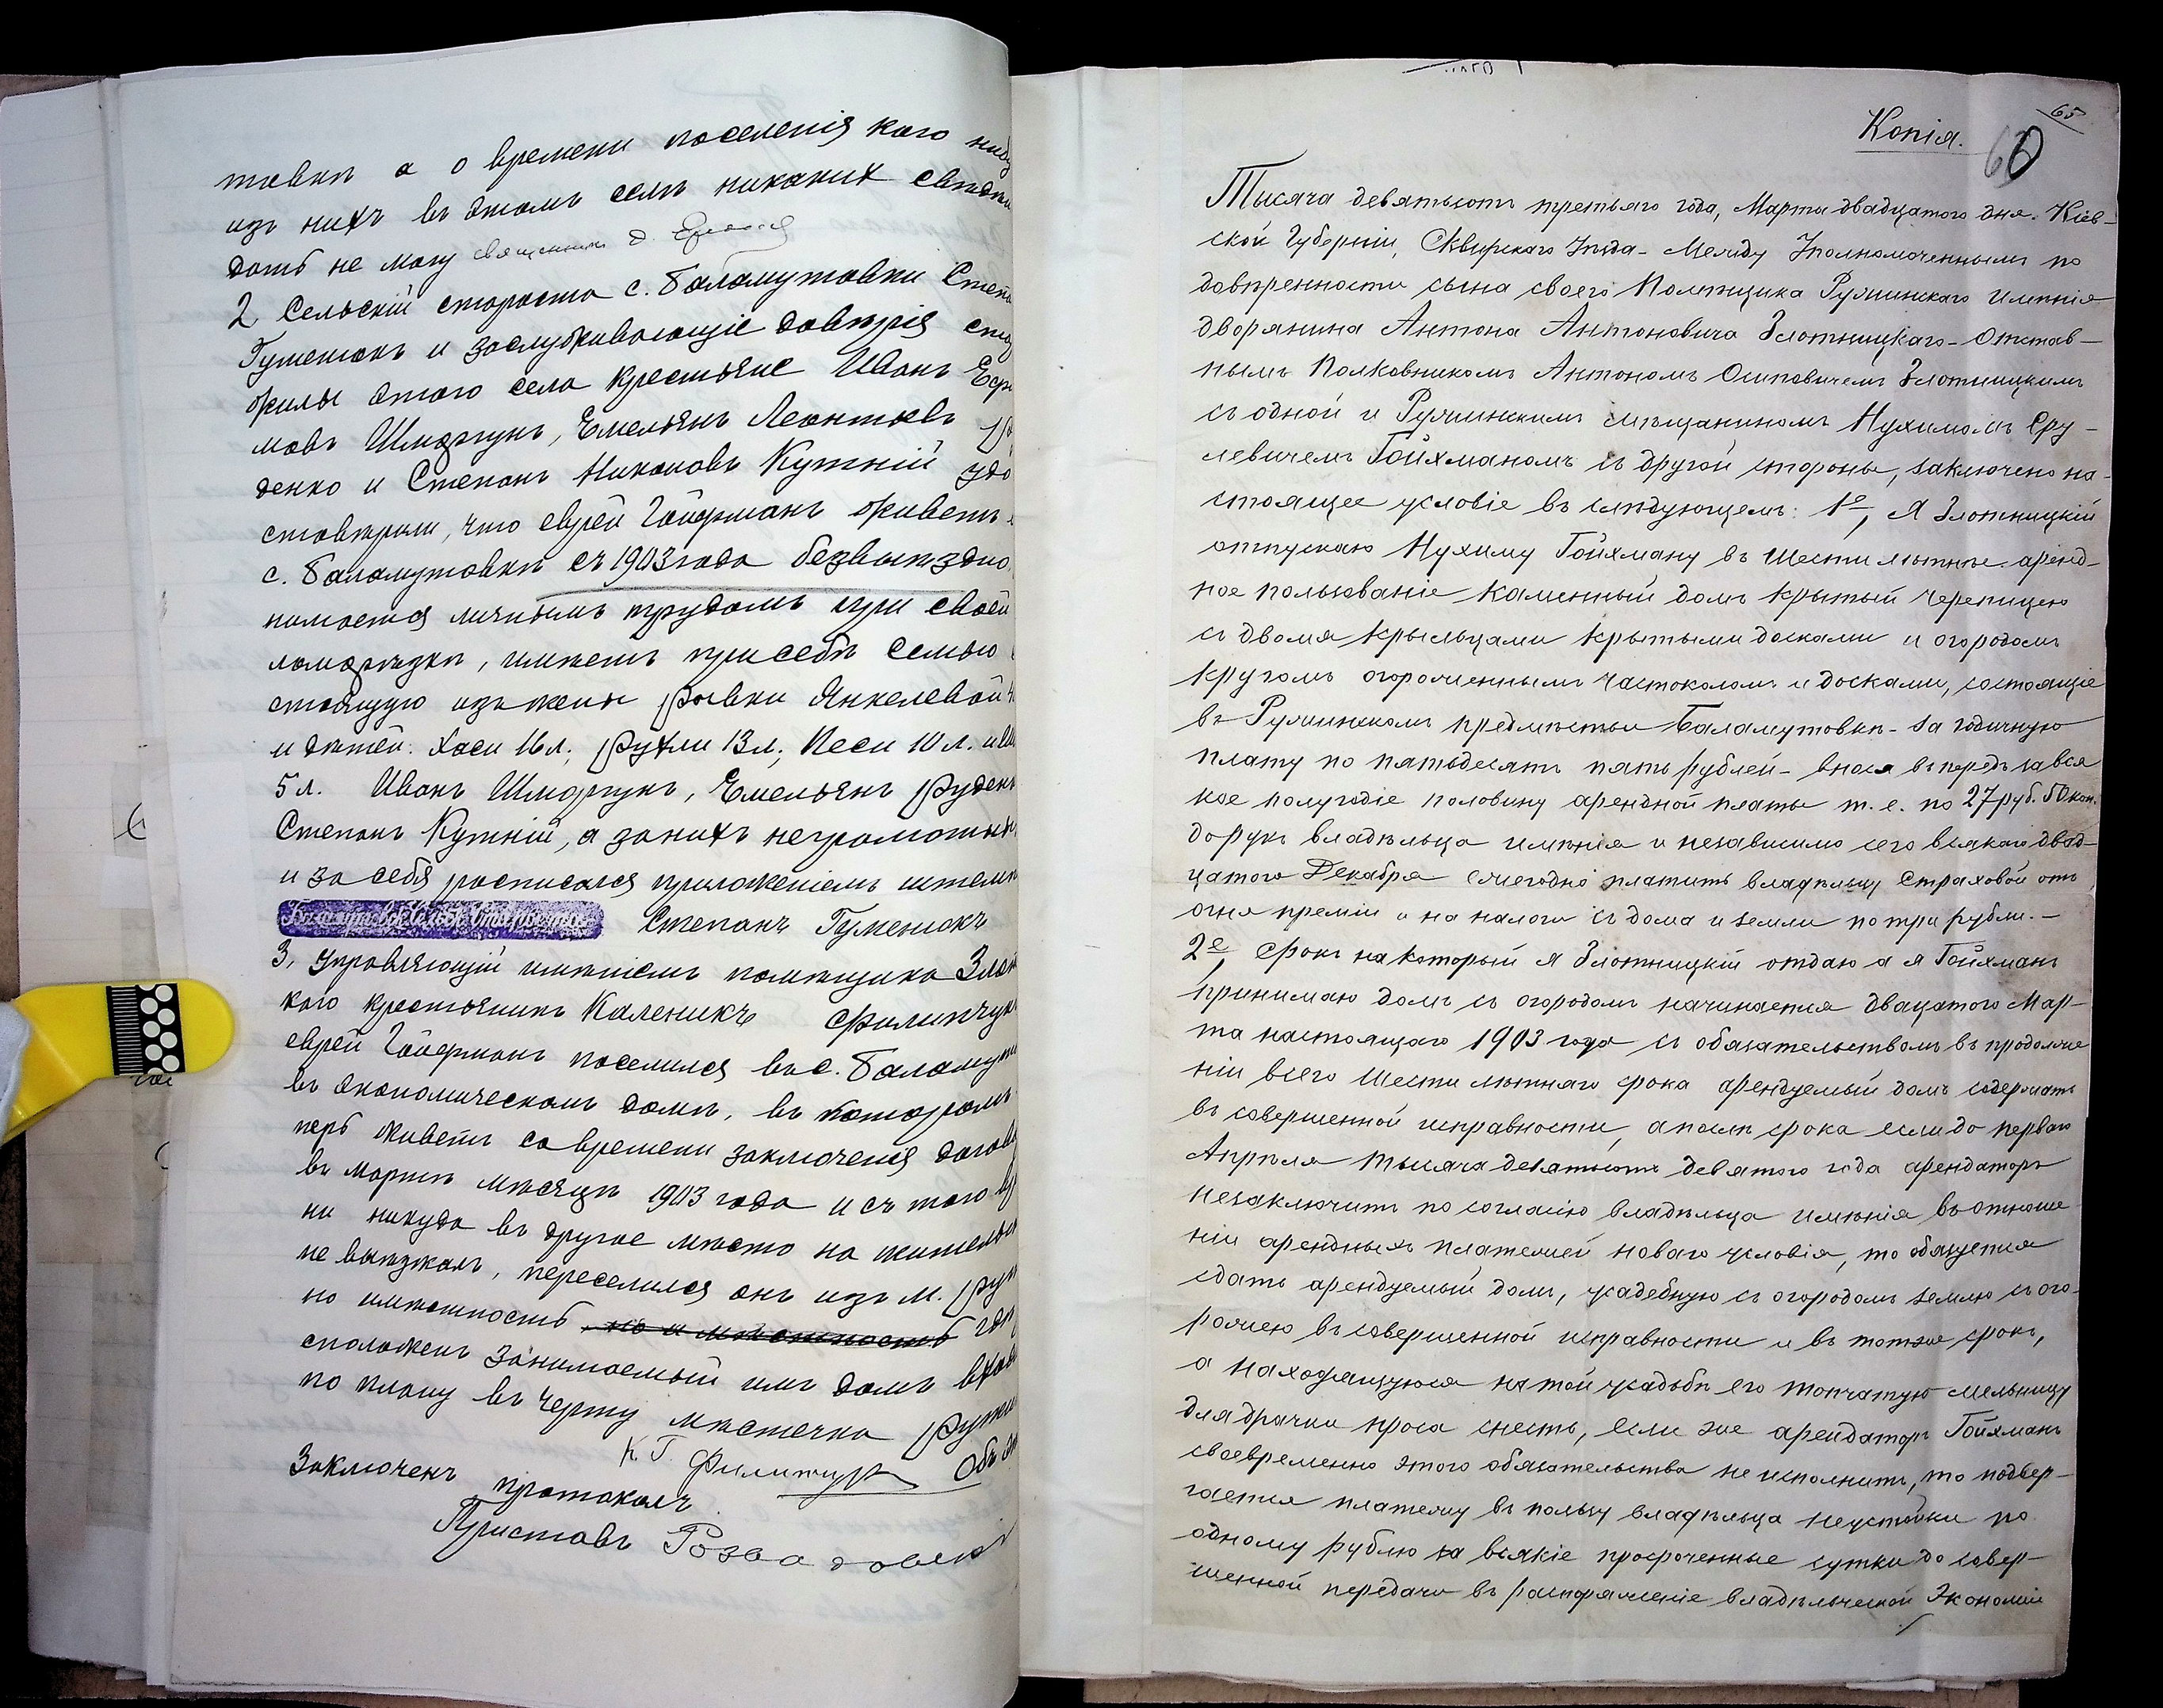 товки а о времени поселенія кого нибу
изъ нихъ въ этомъ селѣ никакихъ свѣдѣн
дать не могу священникъ
2 Сельскій староста с. Баламутовки Степа
Гуменюкъ и заслуживающіе довѣрія ста
жилы этого села крестьяне Иванъ Ефи
мовъ Шмаргунъ, Емельянъ Леонтьевъ Ру
денко и Степанъ Никоновъ Кутній удо
стовѣрили, что еврей Гойфманъ живетъ в
с. Баламутовкѣ съ 1903 года безвыѣздно
нимается личнымъ трудомъ при своей
ломорѣзкѣ, имѣетъ при себѣ семью
стоящую изъ жены Ривки Янкелевой
и дѣтей: Хаси 16 л, Рухли 13 л, Песи 10 л. и
5 л. Иванъ Шмаргунъ, Емельянъ Руден
Степанъ Кутній, а за нихъ неграмотны
и за себя росписался приложеніемъ штемп
Степанъ Гуменюкъ
3, Управляющій имѣніемъ помѣщика Злот
кого крестьянинъ Каленикъ Филипчук
еврей Гойфманъ поселился въ с. Баламут
въ экономическомъ домѣ, въ которомъ
перь живетъ со времени заключенія догов
въ мартѣ мѣсяцѣ 1903 года и съ того вр
ни никуда въ другое мѣсто на жительс
не выѣзжалъ, переселился онъ изъ м. Руж
но имѣстность но и мѣстность гдѣ
сположенъ занимаемый имъ домъ вход
по плану въ черту мѣстечка Ружи
К Г. Филипчукъ Объ эт
Заключенъ протоколъ.
Приставъ Розвадовскій
65
Копія. 60
Тысяча девятьсотъ третьяго года, Марта двадцатого дня. Кіев-
ской Губерніи, Сквирскаго Уѣзда - Между Уполномоченнымъ по
довѣренности сына своего Помѣщика Ружинскаго имѣнія
дворянина Антона Антоновича Злотницкаго - Отстав-
нымъ Полковникомъ Антономъ Осиповичемъ Злотницкимъ
съ одной и Ружинскимъ мѣщаниномъ Нухимомъ Сру-
левичемъ Гойхманомъ съ другой стороны, заключено на-
стоящее условіе въ слѣдующемъ: 1е, Я Злотницкій
отпускаю Нухиму Гойхману въ шестилѣтнее аренд-
ное пользованіе каменный домъ крытый черепицею
съ двомя крыльцами крытыми досками и огородомъ
кругомъ огороженнымъ частоколомъ и досками, состоящіе
въ Ружинскомъ предмѣстьи Баламутовкѣ - за годичную
плату по пятьдесятъ пять рублей - внося въ передъ за вся
кое полугодіе половину арендной платы т. е. по 27 руб. 50 коп.
до рукъ владѣльца имѣнія и независимо сего всякаго двад-
цатого Декабря ежегодно платить владѣльцу Страховой отъ
огня преміи и на налоги съ дома и земли по три рубли. -
2е Срокъ на который я Злотницкій отдаю а я Гойхманъ
принимаю домъ съ огородомъ начинается двацатого Мар-
та настоящаго 1903 года съ обязательствомъ въ продолже
ніи всего шестилѣтняго срока арендуемый домъ содержать
въ совершенной исправности, а послѣ срока если до перваго
Апрѣля тысяча девятьсотъ девятого года арендаторъ
незаключитъ по согласію владѣльца имѣнія въ отноше
ніи арендныхъ платежей новаго условія, то обязуется
сдать арендуемый домъ, усадебную съ огородомъ землю съ ого-
рожею въ совершенной исправности и въ тотже срокъ,
а находящуюся на той усадьбѣ его топчатую мельницу
для драчки проса снесть, если же арендаторъ Гойхманъ
своевременно этого обязательства не исполнитъ, то подвер-
гается платежу въ пользу владѣльца неустойки по
одному рублю за всякіе просроченные сутки до совер-
шенной передачи въ распоряженіе владѣльческой Экономіи